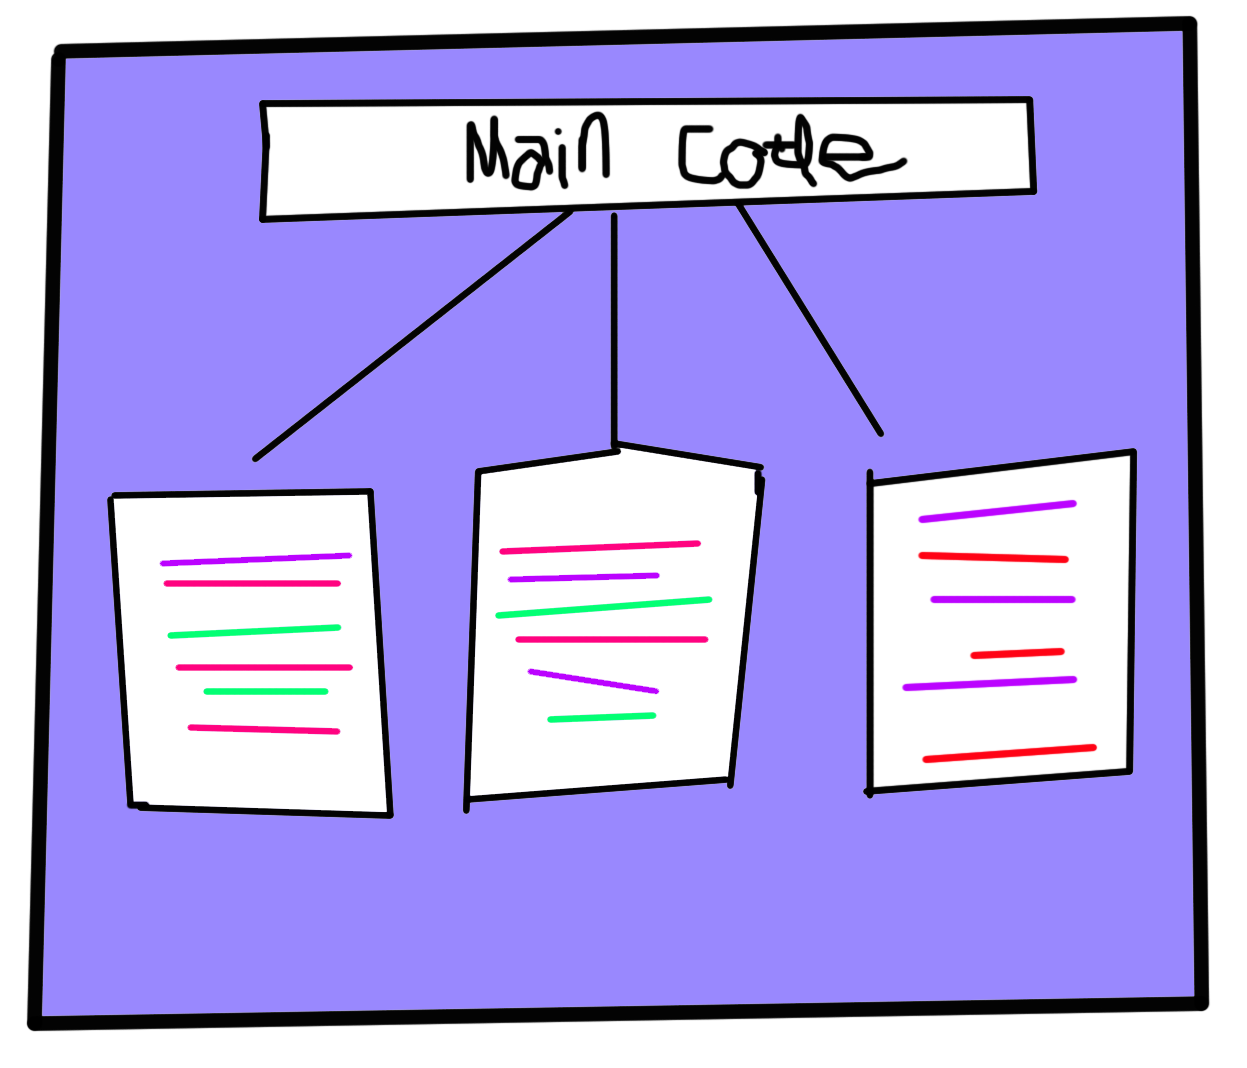 Main Code